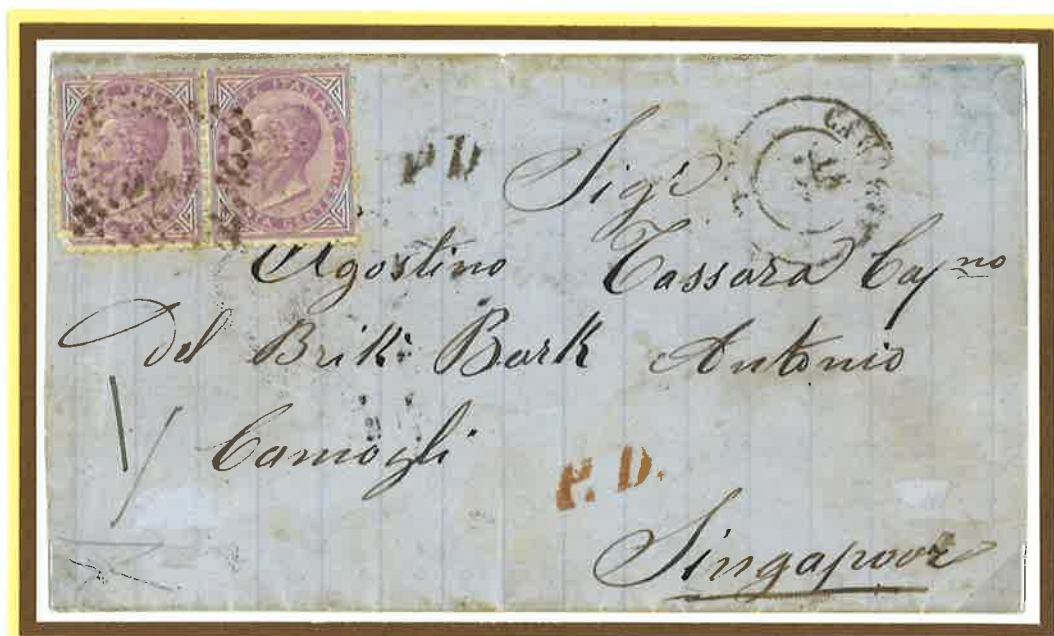 P.D
Sigr
Agostino Cassara Capno
Del Brik: Bark Antonio
Camogli
P. D.
Singapoor